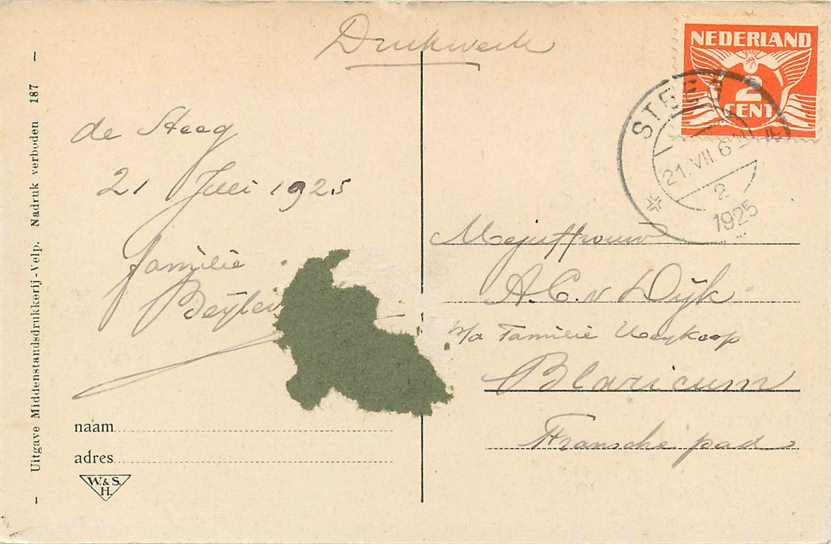 Uitgave Middenstandsdrukkerij-Velp. Nadruk verboden 187
Drukwerk
de Steeg
21 Juli 1925
familie
naam
adres
W.&S.
H.
NEDERLAND
2
CENT
STEEG
21.VII 6
2
1925
Mejuffrouw
A.C. v Dijk
p/a Familie
Blaricum
Fransche pad